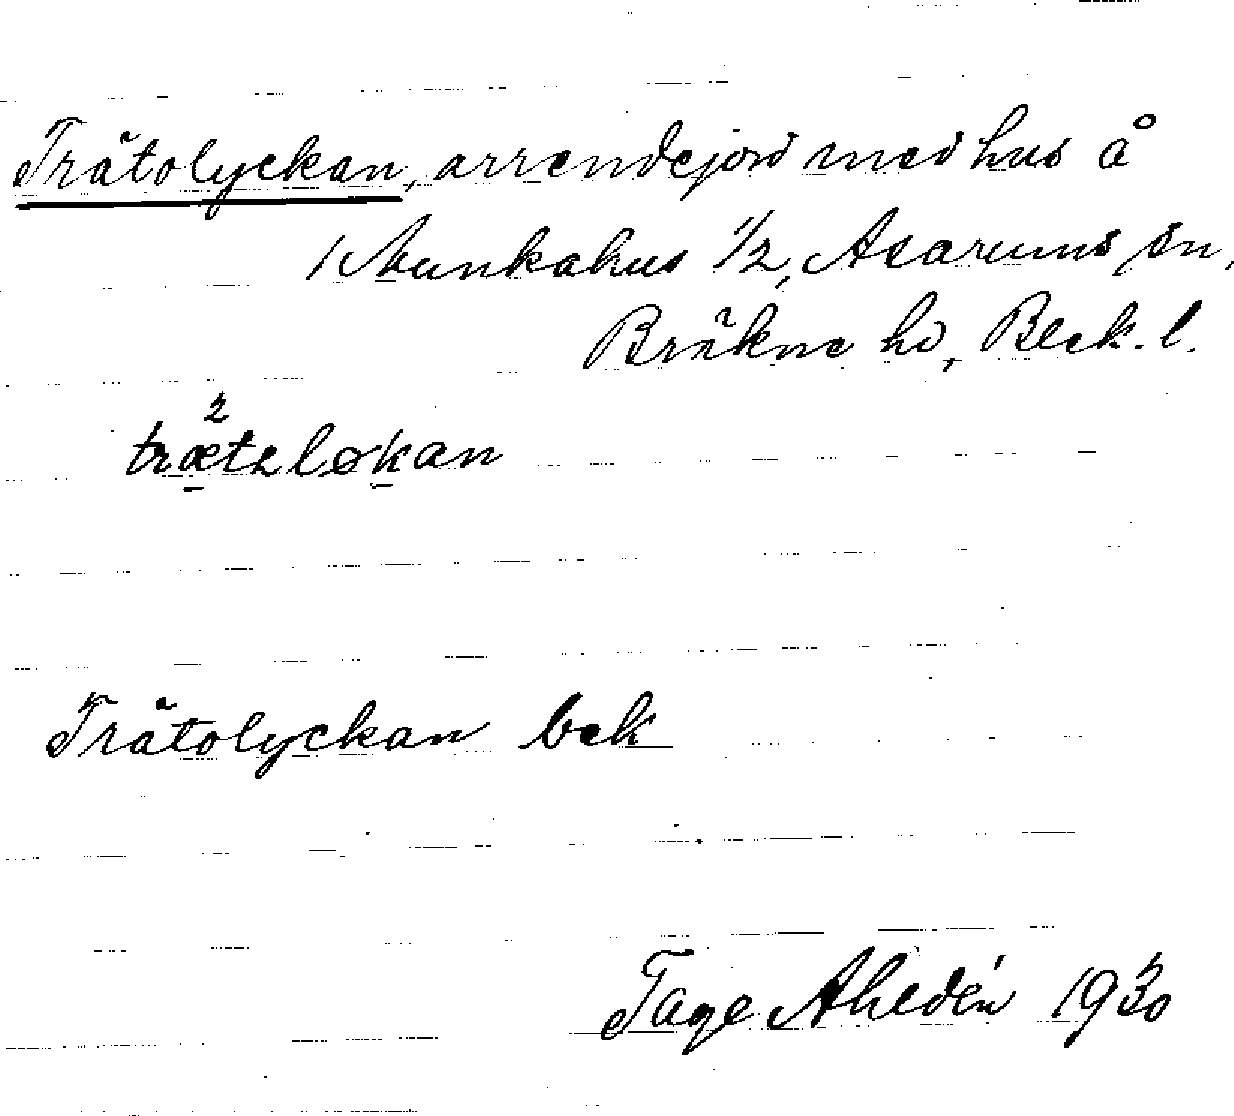 Trätolyckan, arrendejord med hus å
1 Munkahus 1/2, Asarums sn,
Bräkne hd, Blek. l.
2
trætɛløkan
Trätolyckan bek
Tage Ahldén 1930